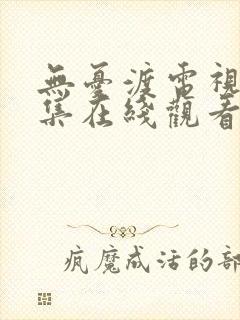 無憂渡電視
集在綫觀看
疯魔成活的部